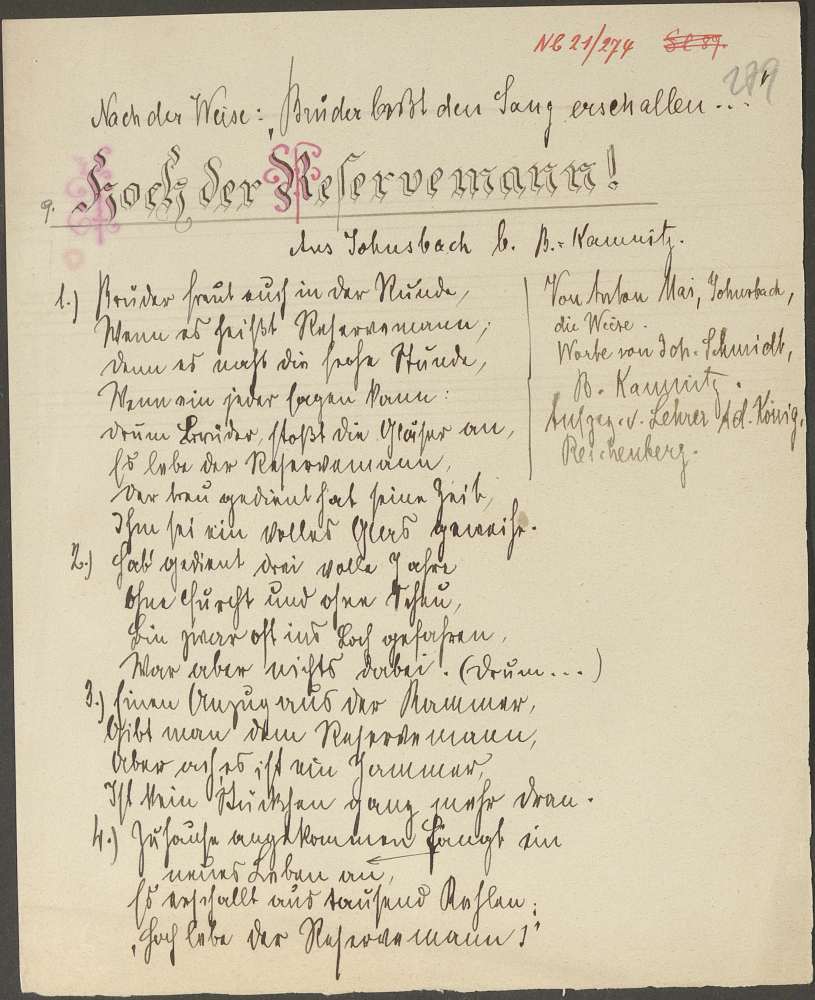 NB 21/274
279
Nach der Weise: „Brüder laßt den Sang erschallen..."
9. Hoch der Reservemann!
Aus Johnsbach b. B.-Kamnitz.
1.) Brüder freut euch in der Runde,
Wenn es heißt Reservemann;
Denn es naht die frohe Stunde,
Wenn ein jeder sagen kann:
Drum Brüder, stoßt die Gläser an,
Es lebe der Reservemann,
Der treu gedient hat seine Zeit,
Ihm sei ein volles Glas geweiht.
Von Anton Mai, Johnsbach,
die Weise.
Worte von Joh. Schmidt,
B. Kamnitz.
Aufgez. v. Lehrer Ad. König,
Reichenberg.
2.) Hab' gedient drei volle Jahre
Ohne Furcht und ohne Scheu,
Bin zwar oft ins Loch gefahren,
War aber nichts dabei. (Drum...)
3.) Einen Anzug aus der Kammer,
Gibt man dem Reservemann,
Aber ach, es ist ein Jammer,
Ist kein Stückchen ganz mehr dran.
4.) Zuhause angekommen fängt ein
neues Leben an,
Es erschallt aus tausend Kehlen:
„Hoch lebe der Reservemann!"